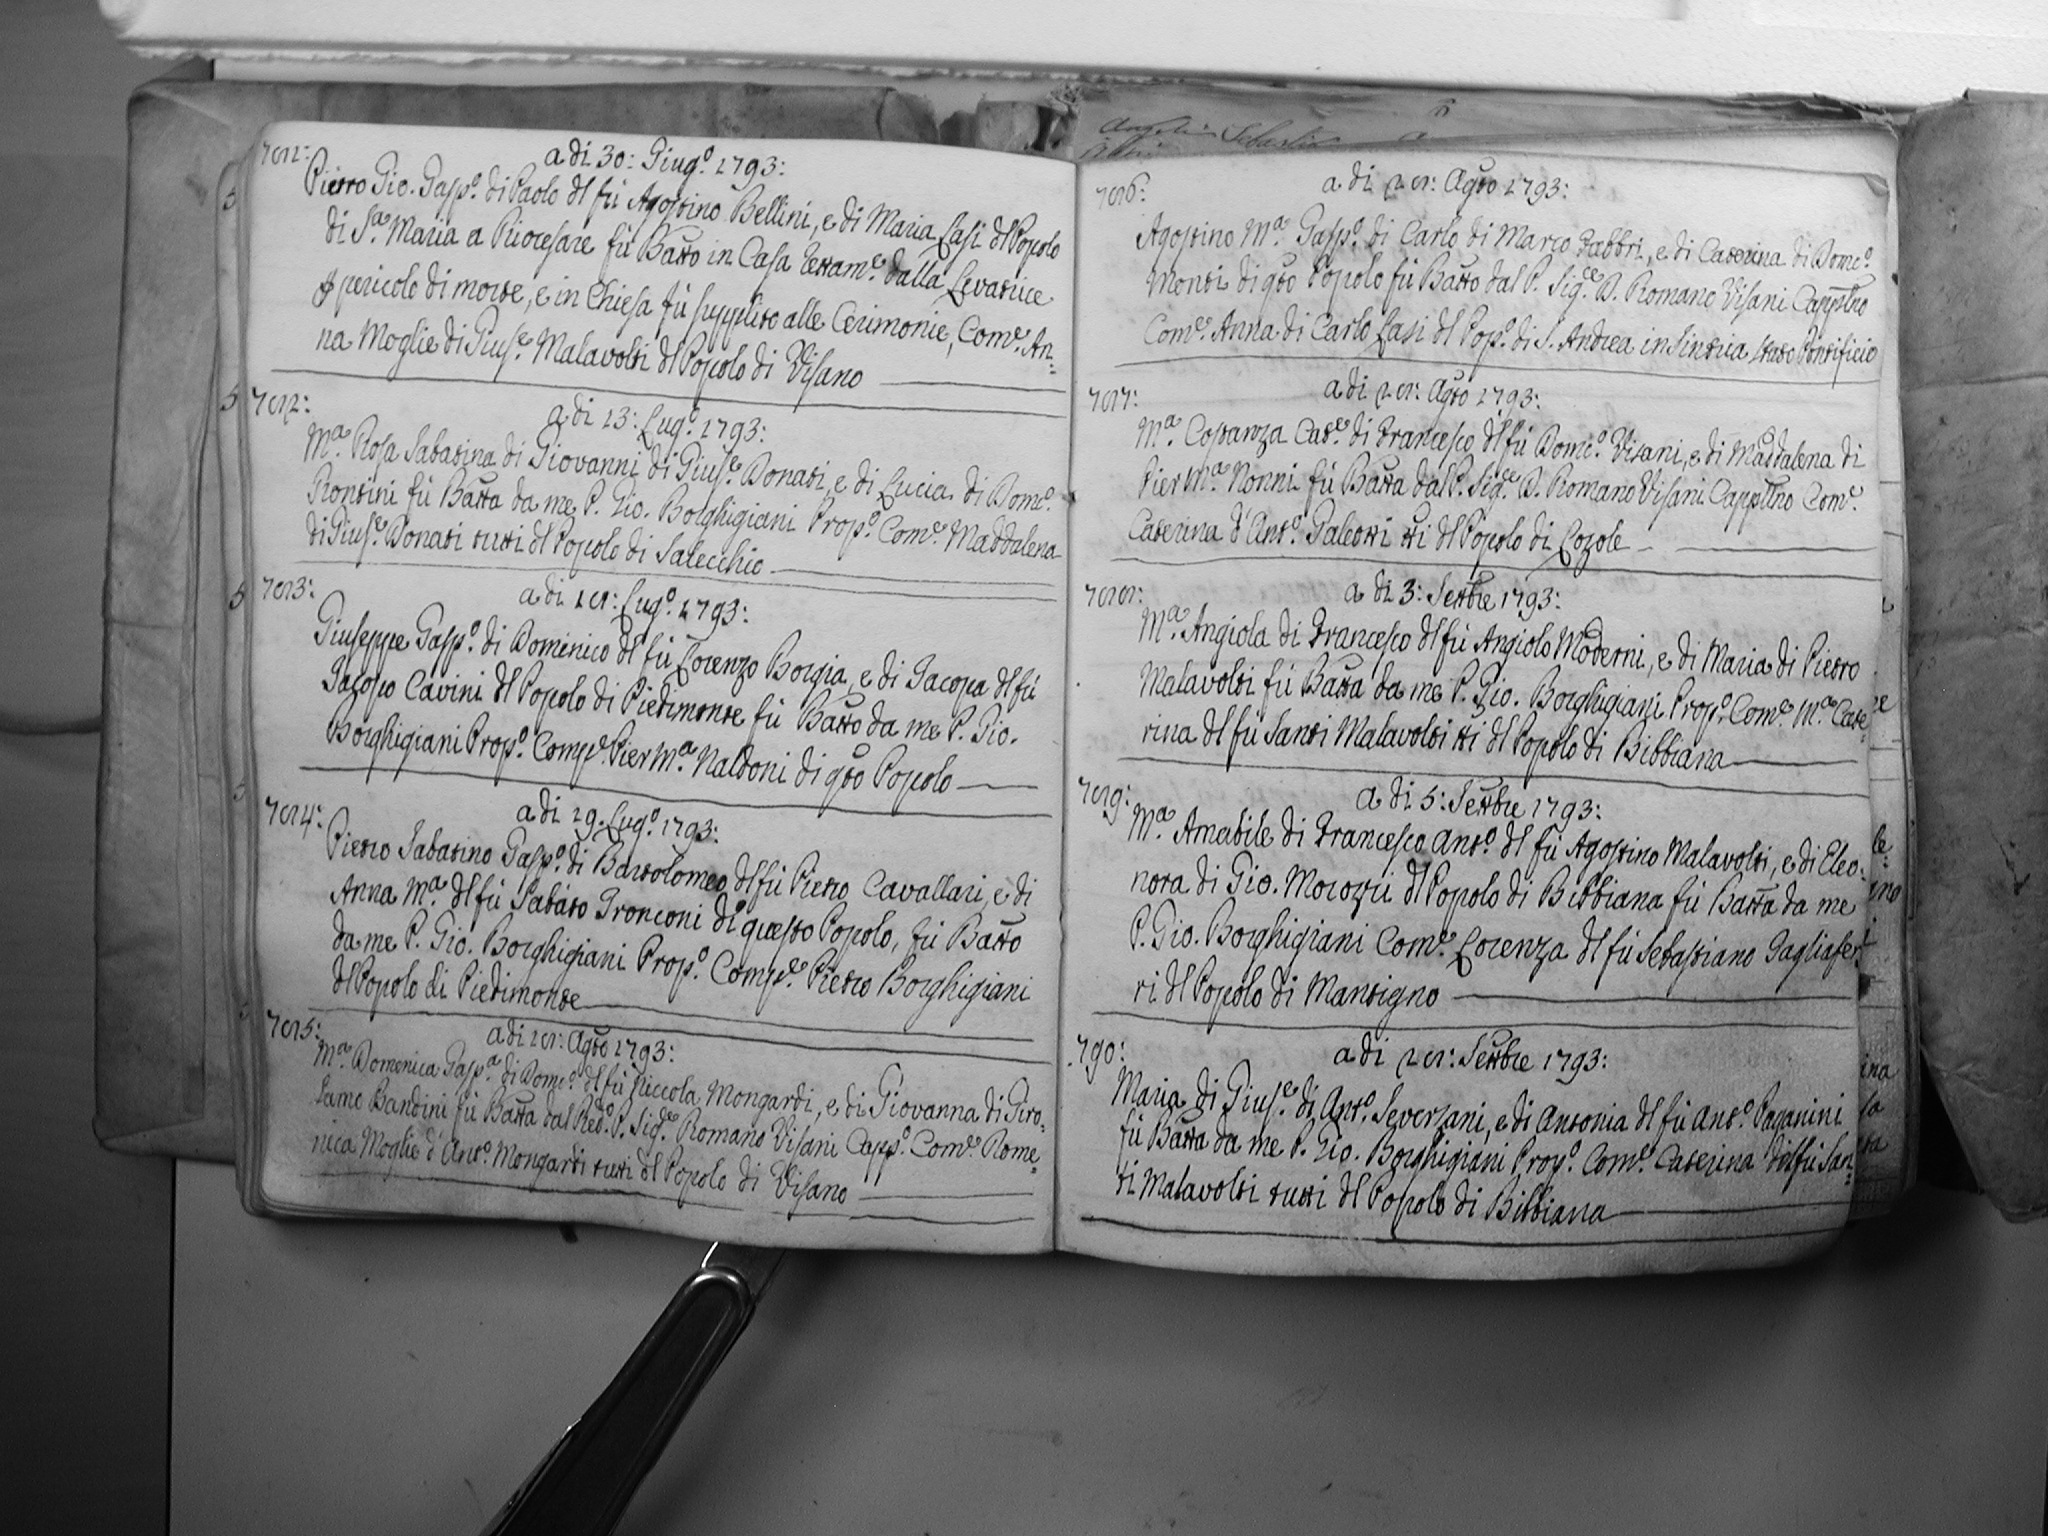 781:
a di 30: Giug.o 1793:
Pietro Gio. Gasp.o di Paolo dl fù Agostino Bellini, e di Maria Casi dl Popolo
di S.a Maria a Piocesare fù Batto in Casa rettam.e dalla Levatrice
p pericolo di morte, e in Chiesa fù supplito alle Cerimonie, Com.e An=
na Moglie di Gius.e Malavolti dl Popolo di Visano
782:
a di 13: Lug.o 1793:
M.a Rosa Sabatina di Giovanni di Gius.e Donati, e di Lucia di Dom.co
Frontini fù Batta da me P. Gio. Borghigiani Prop.o Com.e Maddalena
di Gius.e Donati tutti dl Popolo di Salecchio
783:
a di 18: Lug.o 1793:
Giuseppe Gasp.o di Domenico dl fù Lorenzo Borgia, e di Jacopa dl fù
Jacopo Cavini dl Popolo di Piedimonte fù Batto da me P. Gio.
Borghigiani Prop.o Comp.e Pier M.a Naldoni di qto Popolo
784:
a di 19. Lug.o 1793:
Pietro Sabatino Gasp.o di Bartolomeo dl fù Pietro Cavallari, e di
Anna M.a dl fù Sabato Tronconi di questo Popolo, fù Batto
da me P. Gio. Borghigiani Prop.o Comp.e Pietro Borghigiani
dl Popolo di Piedimonte
785:
a di 18: Agto 1793:
M.a Domenica Gasp.a di Dom.co dl fù Niccola Mongardi, e di Giovanna di Giro=
lamo Bandini fù Batta dal Red.o P. Sig.e Romano Visani Capp.o Com.e Rome=
nica Moglie d'Ant.o Mongardi tutti dl Popolo di Visano
786:
a di 28: Agto 1793:
Agostino M.a Gasp.o di Carlo di Marco Fabbri, e di Caterina di Dom.co
Monti di qto Popolo fù Batto dal P. Sig.re D. Romano Visani Cappllno
Com.e Anna di Carlo Casi dl Pop.o di S. Andrea in Sintria stato Pontificio
787:
a di 28: Agto 1793:
M.a Costanza Cat.e di Francesco dl fù Dom.co Visani, e di Maddalena di
Pier M.a Nonni fù Batta dal P. Sig.re D. Romano Visani Cappllno Com.e
Caterina d'Ant.o Galeotti tti dl Popolo di Lozole
788:
a di 3: Settbre 1793:
M.a Angiola di Francesco dl fù Angiolo Moderni, e di Maria di Pietro
Malavolti fù Batta da me P. Gio. Borghigiani Prop.o Com.e M.a Cate=
rina dl fù Santi Malavolti tti dl Popolo di Bibbiana
789:
a di 5: Settbre 1793:
M.a Amabile di Francesco Ant.o dl fù Agostino Malavolti, e di Eleo=
nora di Gio. Morozzi dl Popolo di Bibbiana fù Batta da me
P. Gio. Borghigiani Com.e Lorenza dl fù Sebastiano Tagliafer=
ri dl Popolo di Mantigno
790:
a di 28: Settbre 1793:
Maria di Gius.e di Ant.o Severzani, e di Antonia dl fù Ant.o Paganini
fù Batta da me P. Gio. Borghigiani Prop.o Com.e Caterina dl fù San=
ti Malavolti tutti dl Popolo di Bibbiana